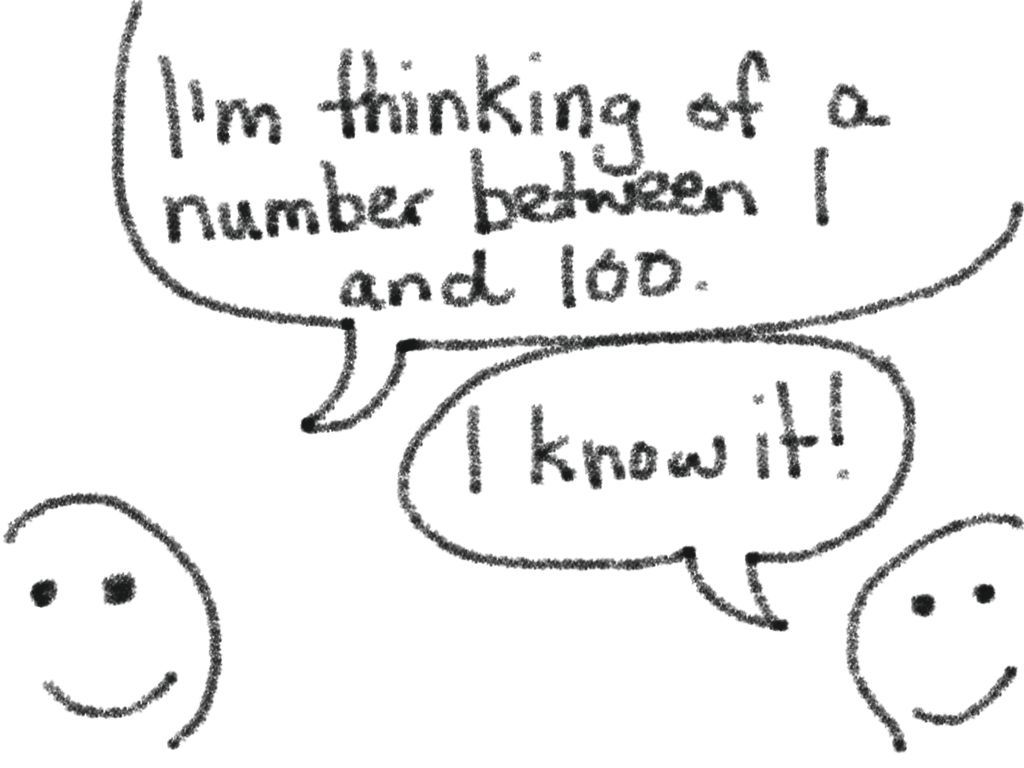 I'm thinking of a
number between 1
and 100.
I know it!